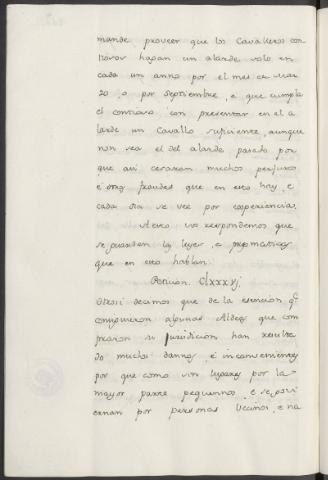 mande proveer que los Cavalleros con
tiosos hagan un alarde solo en
cada un anno por el mes de Mar
zo, o por Septiembre, e que cumpla
el contioso con presentar en el a
larde un Cavallo suficiente, aunque
non sea el del alarde pasado por
que asi cesaran muchos perjuros
e otros fraudes que en esto hay, e
cada dia se vee por experiencia.
A esto vos respondemos que
se guarden las leyes, e pragmaticas
que en esto hablan.
Peticion. Clxxxvj.
Otrosi decimos que de la esencion q.e
consiguieron algunas Aldeas que com
praron su juridicion han resulta
do muchos dannos, e inconvenientes
por que como son lugares por la
mayor parte pequennos, e se govi
ernan por personas Vecinos, e na